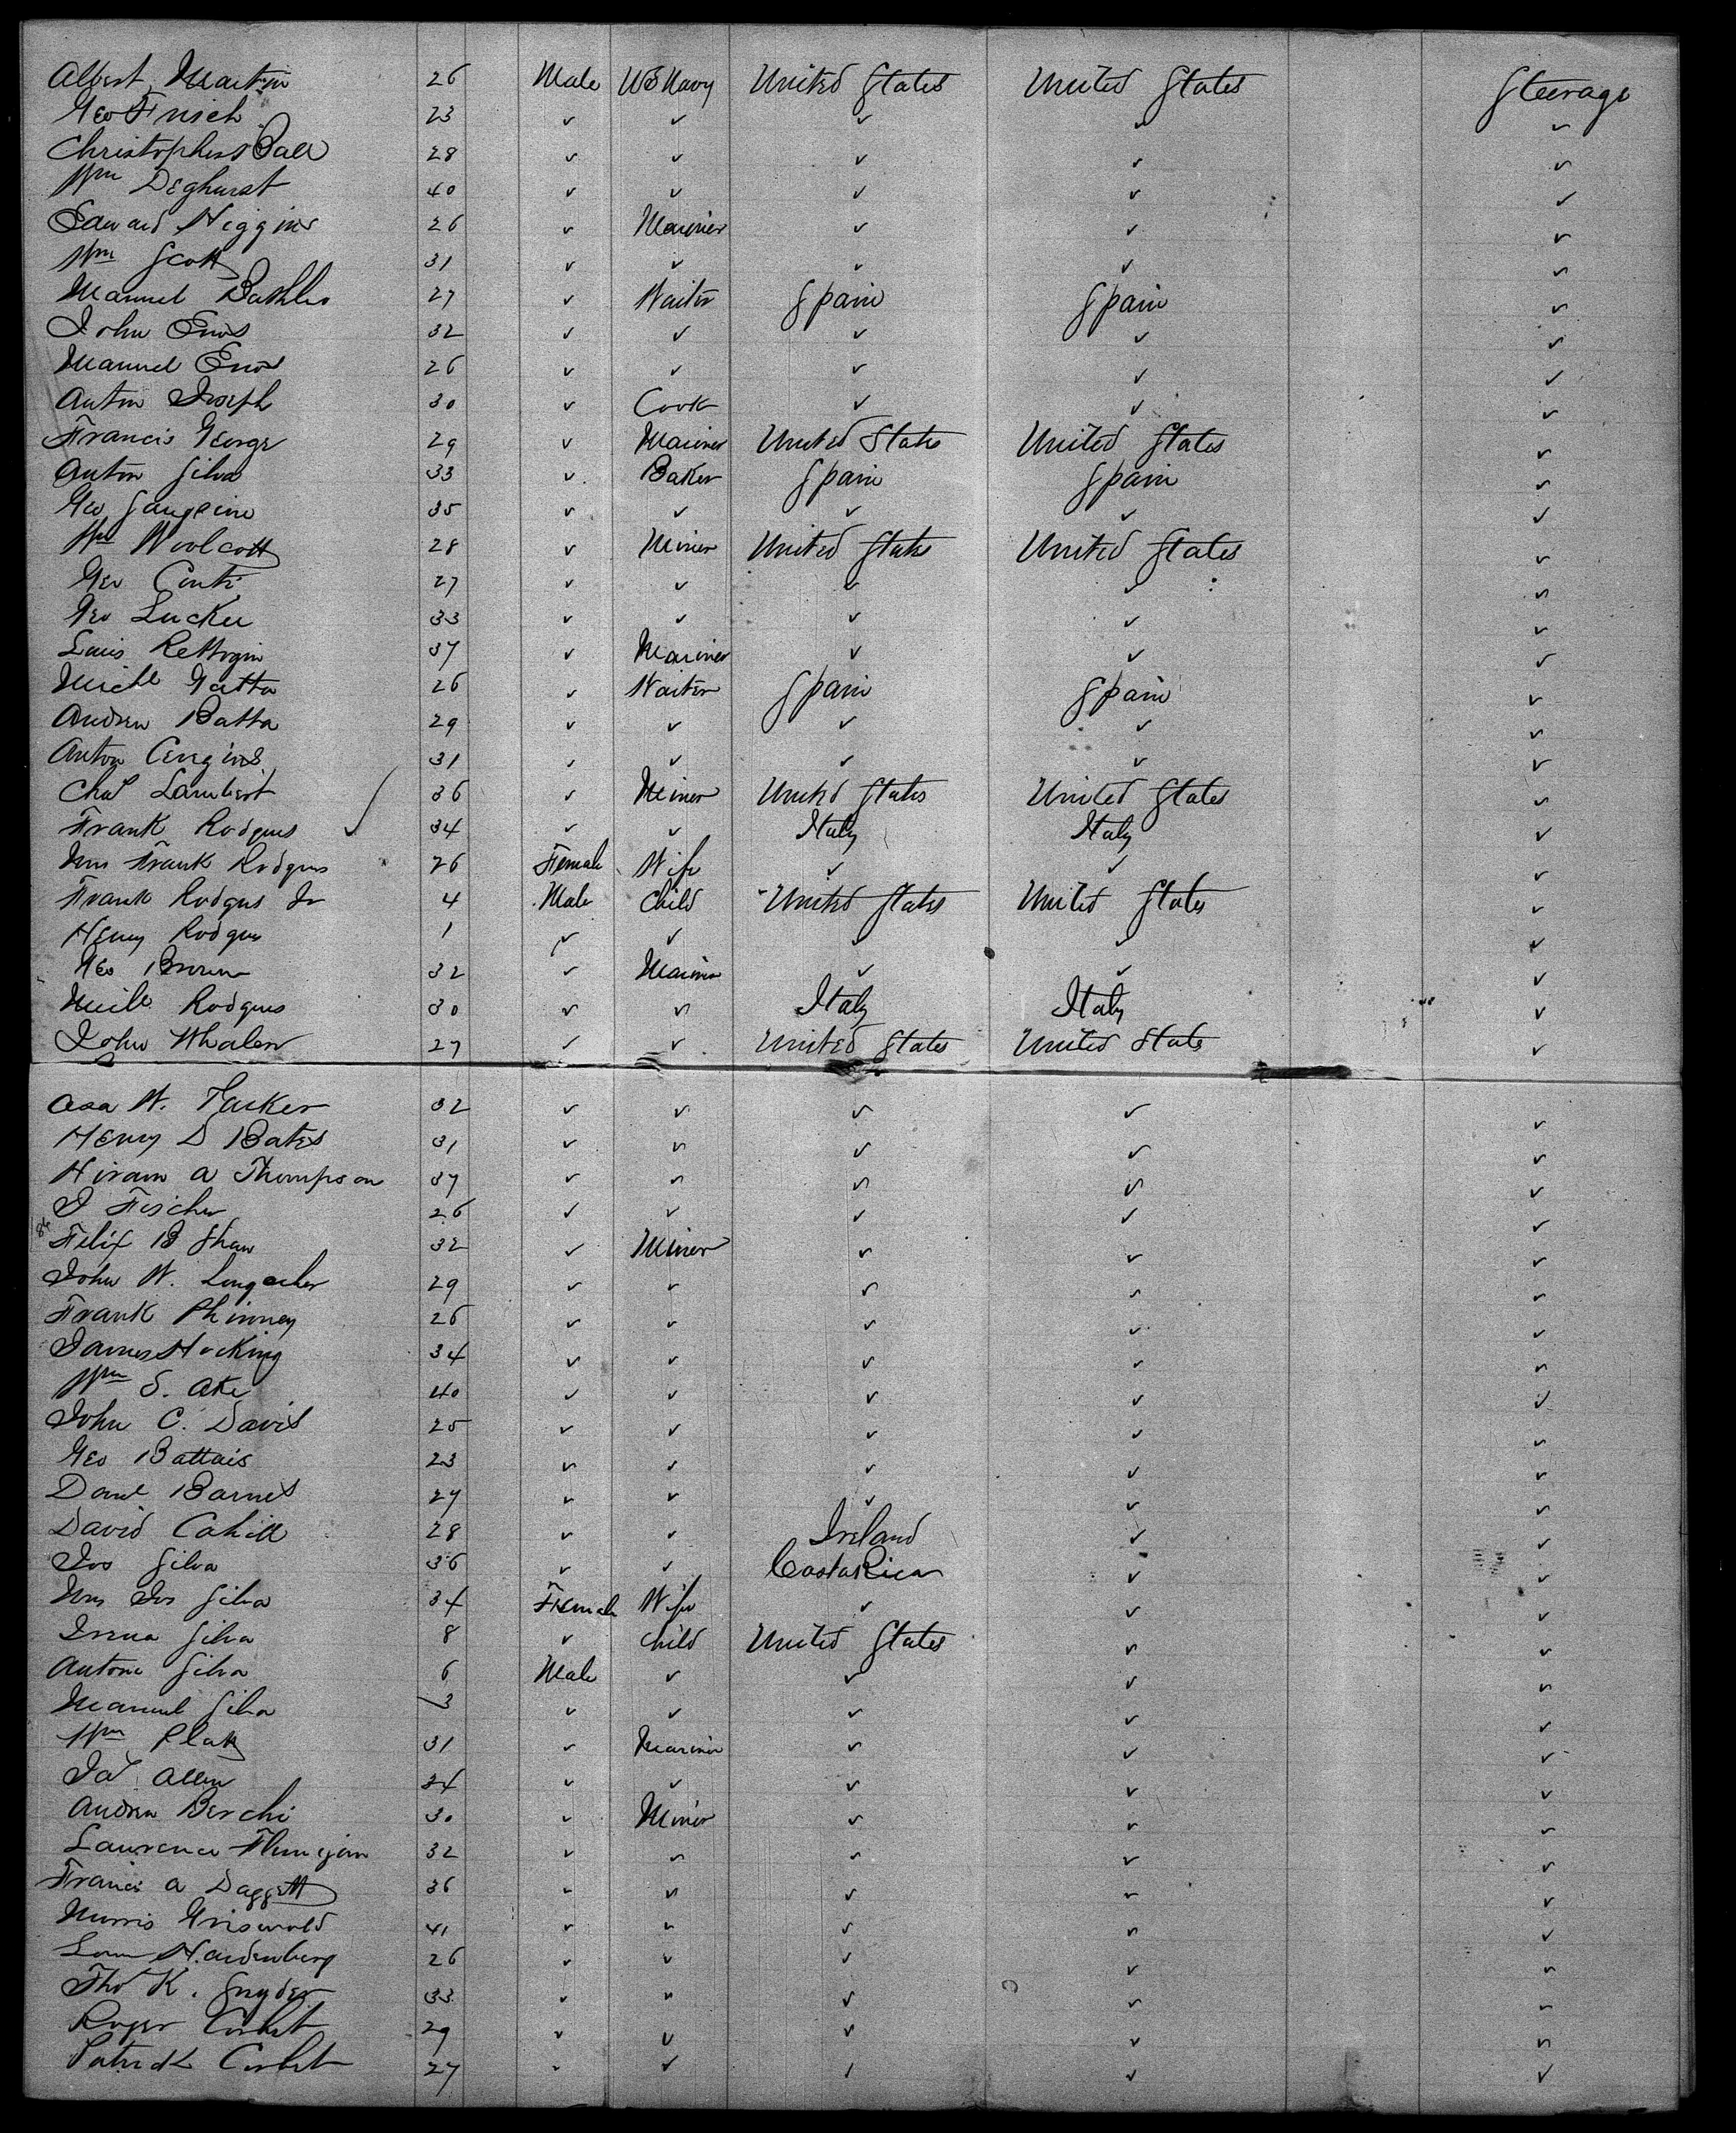 Albert Martin 26 Male US Navy United States United States Steerage
Geo Frisch 23 ✓ ✓ ✓ ✓ ✓
Christopher Ball 28 ✓ ✓ ✓ ✓ ✓
Wm Deghurst 40 ✓ ✓ ✓ ✓ ✓
Edward Higgins 26 ✓ Mariner ✓ ✓ ✓
Wm Scott 31 ✓ ✓ ✓ ✓ ✓
Manuel 27 ✓ Waiter Spain Spain ✓
John Enos 32 ✓ ✓ ✓ ✓ ✓
Manuel Enos 26 ✓ ✓ ✓ ✓ ✓
Anton Joseph 30 ✓ Cook ✓ ✓ ✓
Francis George 29 ✓ Mariner United States United States ✓
Anton Silva 33 ✓ Baker Spain Spain ✓
Geo 35 ✓ ✓ ✓ ✓ ✓
Wm Woolcott 28 ✓ Miner United States United States ✓
Geo Conti 27 ✓ ✓ ✓ ✓ ✓
Geo Luckee 33 ✓ ✓ ✓ ✓ ✓
Louis 37 ✓ Mariner ✓ ✓ ✓
Michl Gatta 26 ✓ Waiter Spain Spain ✓
Andrew Batta 29 ✓ ✓ ✓ ✓ ✓
Anton 31 ✓ ✓ ✓ ✓ ✓
Chas Lambert 36 ✓ Miner United States United States ✓
Frank Rodgus ✓ 34 ✓ ✓ Italy Italy ✓
Mrs Frank Rodgus 26 Female Wife ✓ ✓ ✓
Frank Rodgus Jr 4 Male Child United States United States ✓
Henry Rodgus 1 ✓ ✓ ✓ ✓ ✓
Geo Brown 32 ✓ Mariner ✓ ✓ ✓
Michl Rodgus 30 ✓ ✓ Italy Italy ✓
John Whalen 27 ✓ ✓ United States United States ✓
Asa W. Tucker 32 ✓ ✓ ✓ ✓ ✓
Henry D Bates 31 ✓ ✓ ✓ ✓ ✓
Hiram A Thompson 37 ✓ ✓ ✓ ✓ ✓
J Fischer 26 ✓ ✓ ✓ ✓ ✓
Felix B Shaw 32 ✓ Miner ✓ ✓ ✓
John W. Longacher 29 ✓ ✓ ✓ ✓ ✓
Frank Phinney 26 ✓ ✓ ✓ ✓ ✓
James Hocking 34 ✓ ✓ ✓ ✓ ✓
Wm S. Ake 40 ✓ ✓ ✓ ✓ ✓
John C. Davis 25 ✓ ✓ ✓ ✓ ✓
Geo Battais 23 ✓ ✓ ✓ ✓ ✓
Danl Barnes 27 ✓ ✓ ✓ ✓ ✓
David Cahill 28 ✓ ✓ Ireland ✓ ✓
Jos Silva 36 ✓ ✓ Costa Rica ✓ ✓
Mrs Jos Silva 34 Female Wife ✓ ✓ ✓
Irena Silva 8 ✓ Child United States ✓ ✓
Antone Silva 6 Male ✓ ✓ ✓ ✓
Manuel Silva 3 ✓ ✓ ✓ ✓ ✓
Wm Platz 31 ✓ Mariner ✓ ✓ ✓
Jas Allen 34 ✓ ✓ ✓ ✓ ✓
Andrew Berchi 30 ✓ Miner ✓ ✓ ✓
Lawrence 32 ✓ ✓ ✓ ✓ ✓
Francis A Daggett 36 ✓ ✓ ✓ ✓ ✓
Morris Griswold 41 ✓ ✓ ✓ ✓ ✓
Hardenberg 26 ✓ ✓ ✓ ✓ ✓
Thos K. Snyder 33 ✓ ✓ ✓ ✓ ✓
Roger Corbet 29 ✓ ✓ ✓ ✓ ✓
Patrick Corbet 27 ✓ ✓ ✓ ✓ ✓